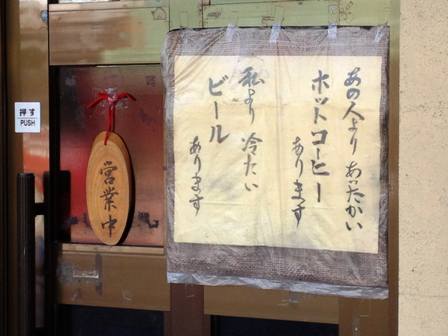 押す
PUSH
営業中
あの人より あったかい
ホットコーヒー
あります
私より 冷たい
ビール
あります